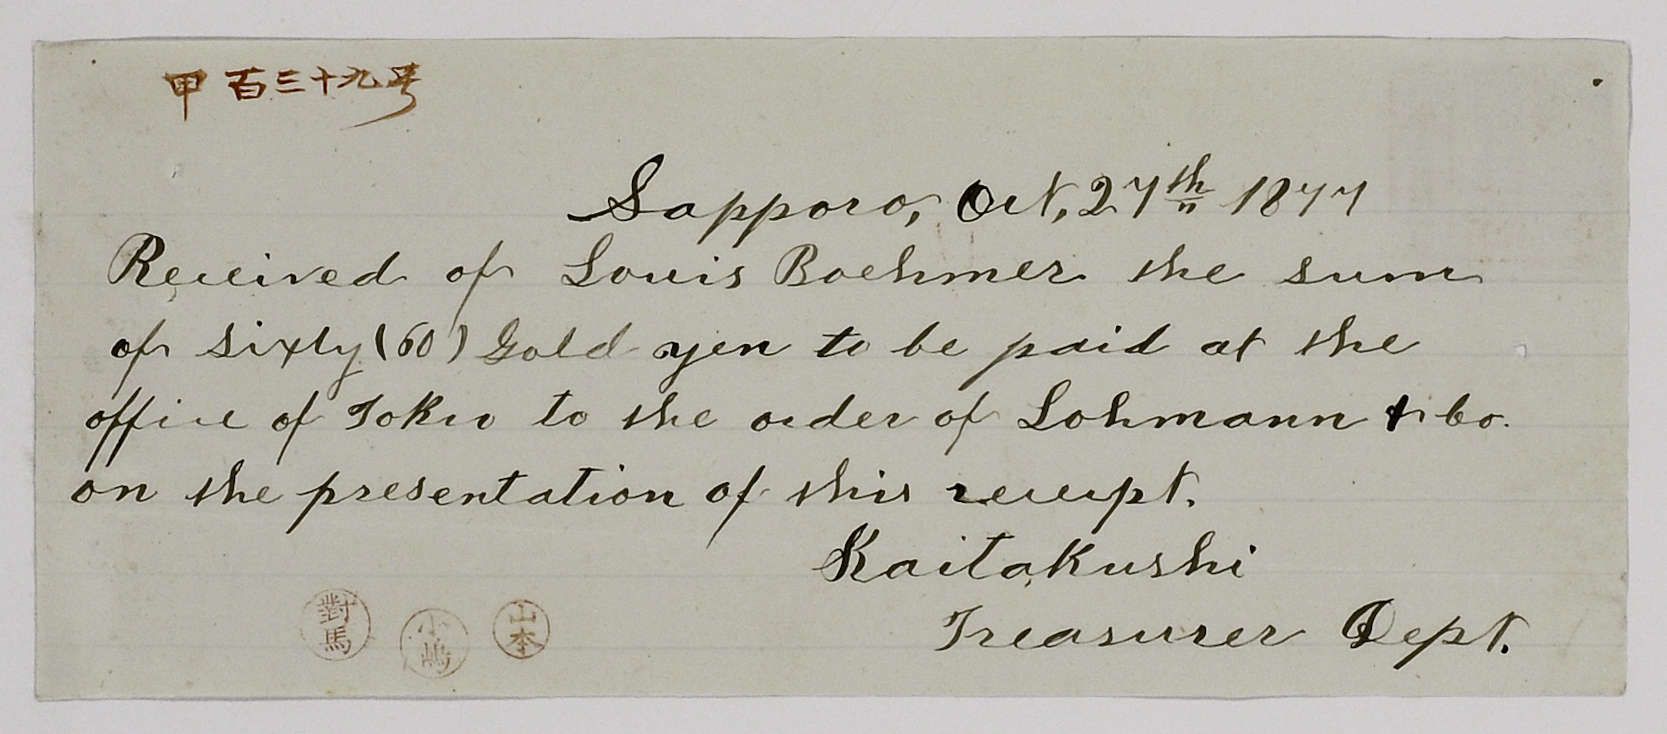 甲百三十九号
Sapporo, Oct, 27th 1877
Received of Louis Boehmer the sum
of sixty (60) Gold yen to be paid at the
office of Tokio to the order of Lohmann & Co.
on the presentation of this receipt.
Kaitakushi
Treasurer Dept.
對馬 小嶋 山本